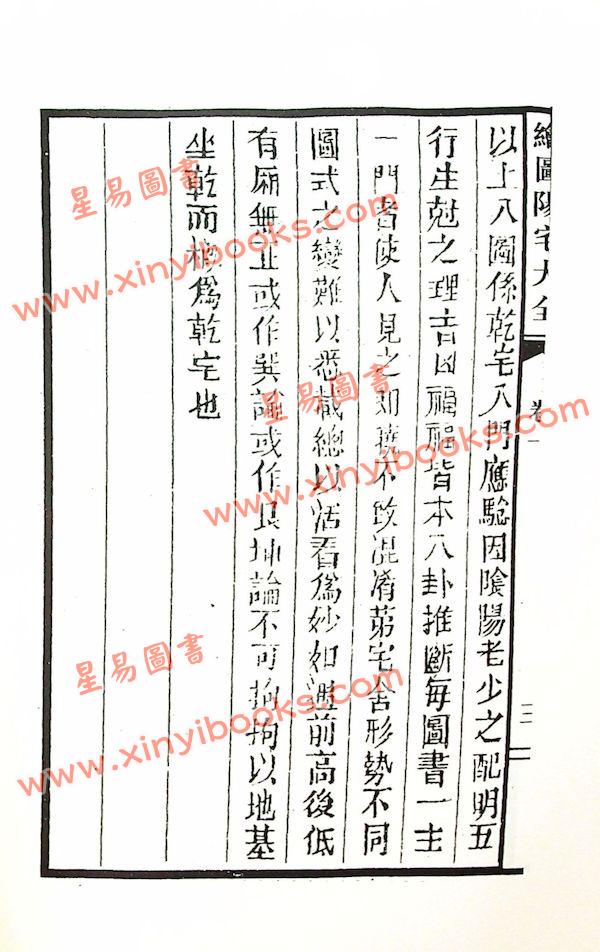 繪圖陽宅大全 卷一
以上八圖係乾宅八門應驗因陰陽老少之配明五
行生尅之理吉凶禍福皆本八卦推斷每圖書一主
一門者使人見之即曉不致混淆第宅舍形勢不同
圖式之變難以悉載總以活看爲妙如遇前高後低
有廂無正或作巽論或作艮坤論不可拘拘以地基
坐乾而概爲乾宅也
星易圖書
www.xinyibooks.com
星易圖書
www.xinyibooks.com
星易圖書
www.xinyibooks.com